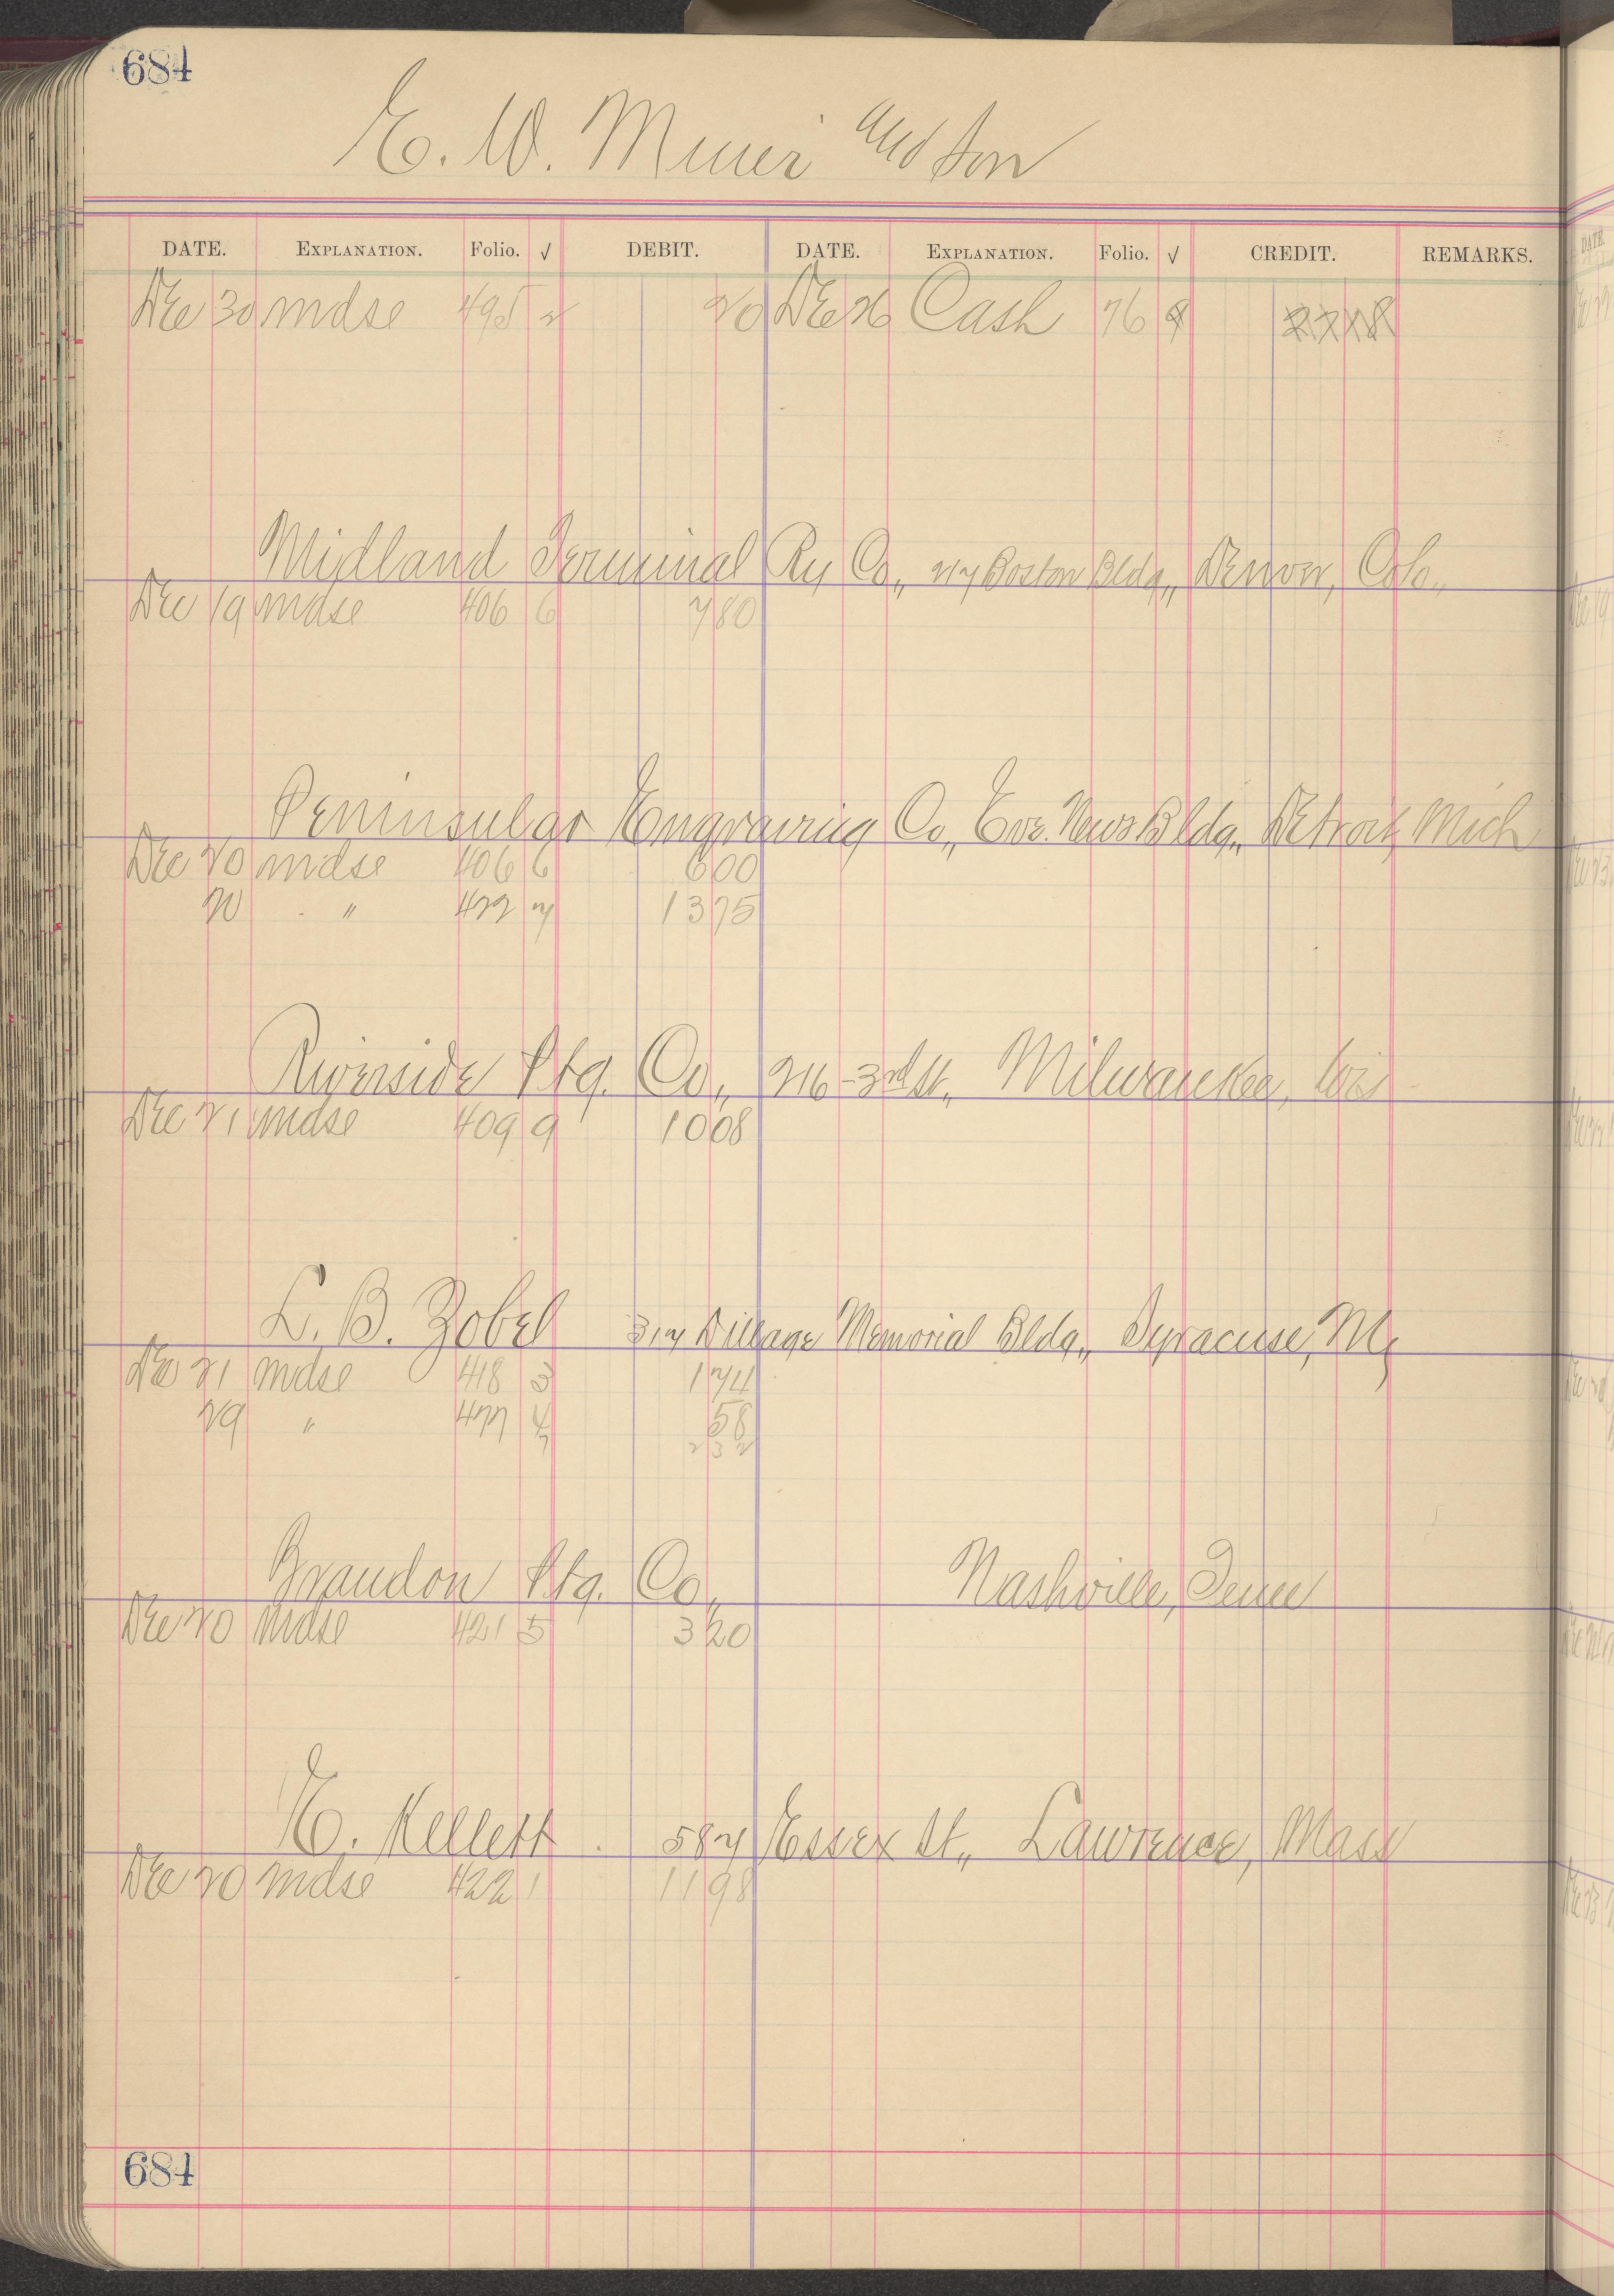 684
E. W. Miner and Son
DATE. EXPLANATION. Folio. √ DEBIT. DATE. EXPLANATION. Folio. √ CREDIT. REMARKS.
Dec 30 mdse 495 2 20 Dec 26 Cash 76
Midland Terminal Ry Co., 217 Boston Bldg., Denver, Colo.,
Dec 19 mdse 406 6 7 80
Peninsular Engraving Co., Eve. News Bldg., Detroit, Mich
Dec 20 mdse 406 6 6 00
20 " 422 7 13 75
Riverside Ptg. Co., 216-3rd St., Milwaukee, Wis
Dec 21 mdse 409 9 10 08
L. B. Zobel 317 Dillage Memorial Bldg., Syracuse, NY
Dec 21 mdse 418 3 1 74
29 " 477 4 58
2 32
Brandon Ptg. Co., Nashville, Tenn
Dec 20 mdse 421 5 3 20
E. Kellett 587 Essex St., Lawrence, Mass
Dec 20 mdse 422 1 11 98
684